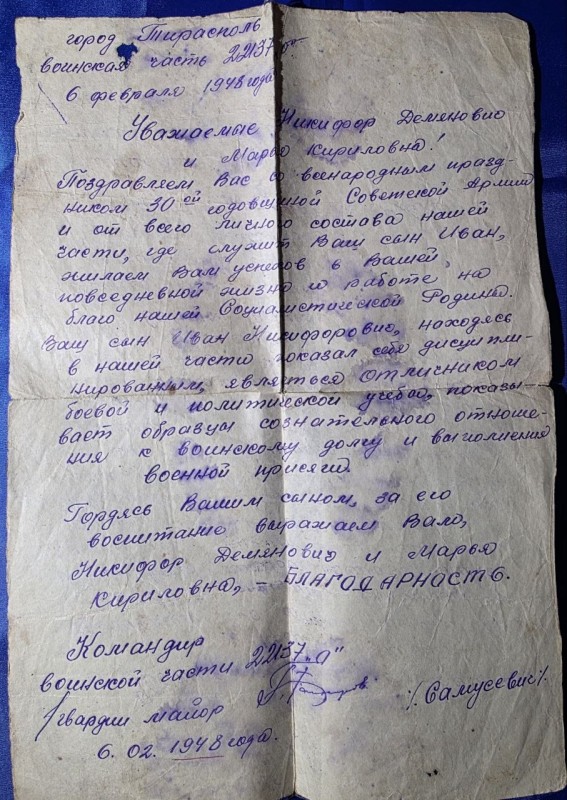 город Тирасполь
воинская часть 22137 "а"
6 февраля 1948 года
Уважаемые Никифор Демянович
и Марья Кириловна!
Поздравляем Вас со всенародным празд-
ником 30ой годовщиной Советской Армии
и от всего личного состава нашей
части, где служит Ваш сын Иван,
жилаем Вам успехов в Вашей
повседневной жизни и работе на
благо нашей Социалистической Родины.
Ваш сын Иван Никифорович, находясь
в нашей части показал себя дисципли-
нированным, является отличником
боевой и политической учебы, показы-
вает образцы сознательного отноше-
ния к воинскому долгу и выполнения
военной присяги.
Гордясь Вашим сыном, за его
воспитание выражаем Вам,
Никифор Демянович и Марья
Кириловна, – БЛАГОДАРНОСТЬ.
Командир
воинской части 22137 "а"
Гвардии майор
/Самусевич/
6. 02. 1948 года.